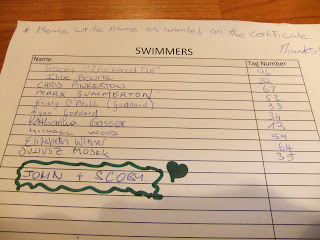 * Please write name as wanted on the certificate.
Thanks!
SWIMMERS
Name Tag Number
Tracey "Chickened Out" 46
Ilse Bourke 22
CHRIS PINKERTON 67
MARK SUMMERTON 53
Kristy O'Neill (Goddard) 33
Ryan Goddard 34
Katharina Gasser 13
MICHAEL WOOD 59
Elizabeth 64
JULIUSZ MOSEK 35
JOHN + SCOBY.